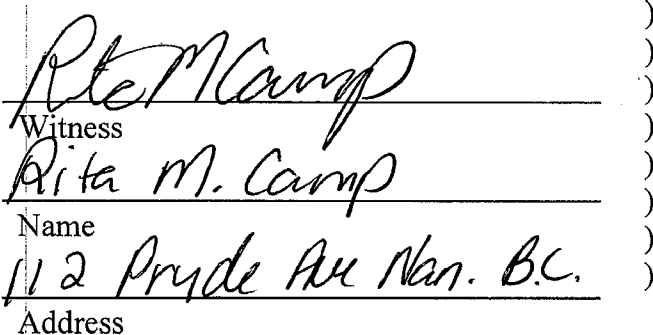 Rita M Camp )
)
Witness )
Rita M. Camp )
)
Name )
112 Pryde Ave Nan. B.C. )
Address